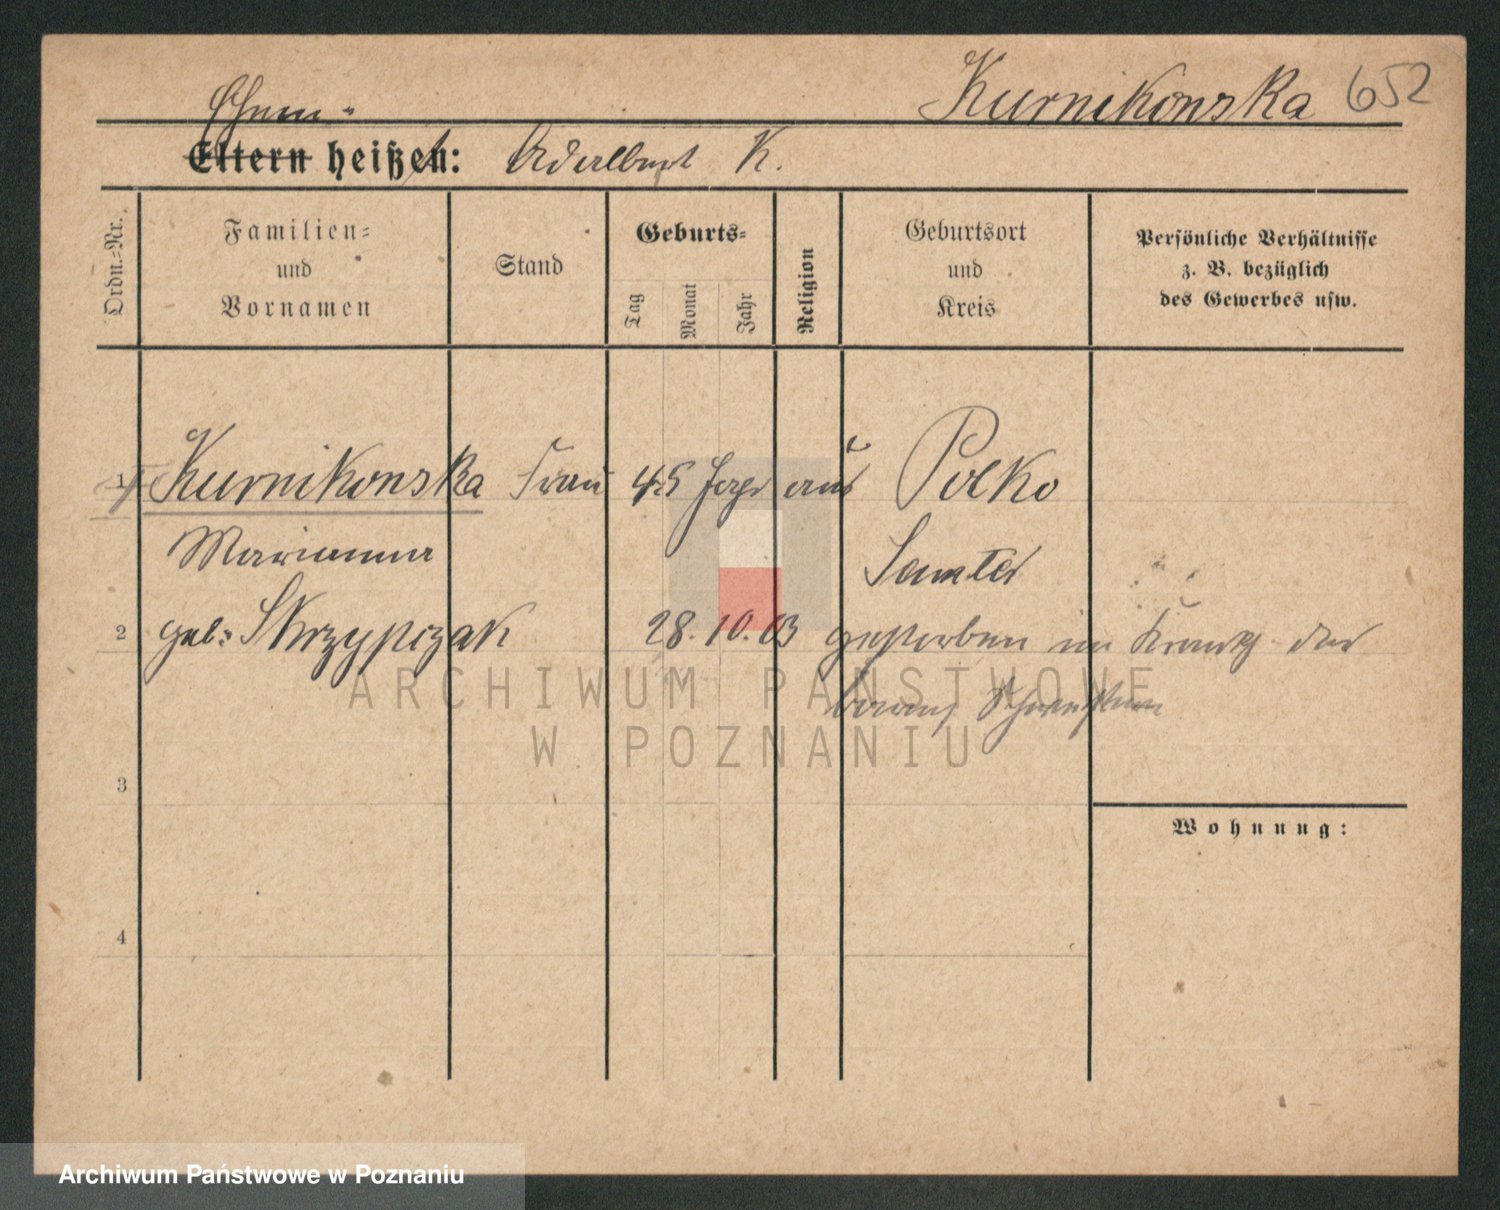 Kurnikowska 652
Ehem=
Eltern heißen: Adalbert K.
Ordn.-Nr.
Familien=
und
Vornamen
Stand
Geburts=
Tag
Monat
Jahr
Religion
Geburtsort
und
Kreis
Persönliche Verhältnisse
z. B. bezüglich
des Gewerbes usw.
1 Kurnikowska Frau 45 Jahr aus Polko
Marianna Samter
2 geb: Skrzypczak 28. 10. 03 gestorben im Krankh. der
barmh. Schwestern
3
4
Wohnung:
ARCHIWUM PAŃSTWOWE
W POZNANIU
Archiwum Państwowe w Poznaniu